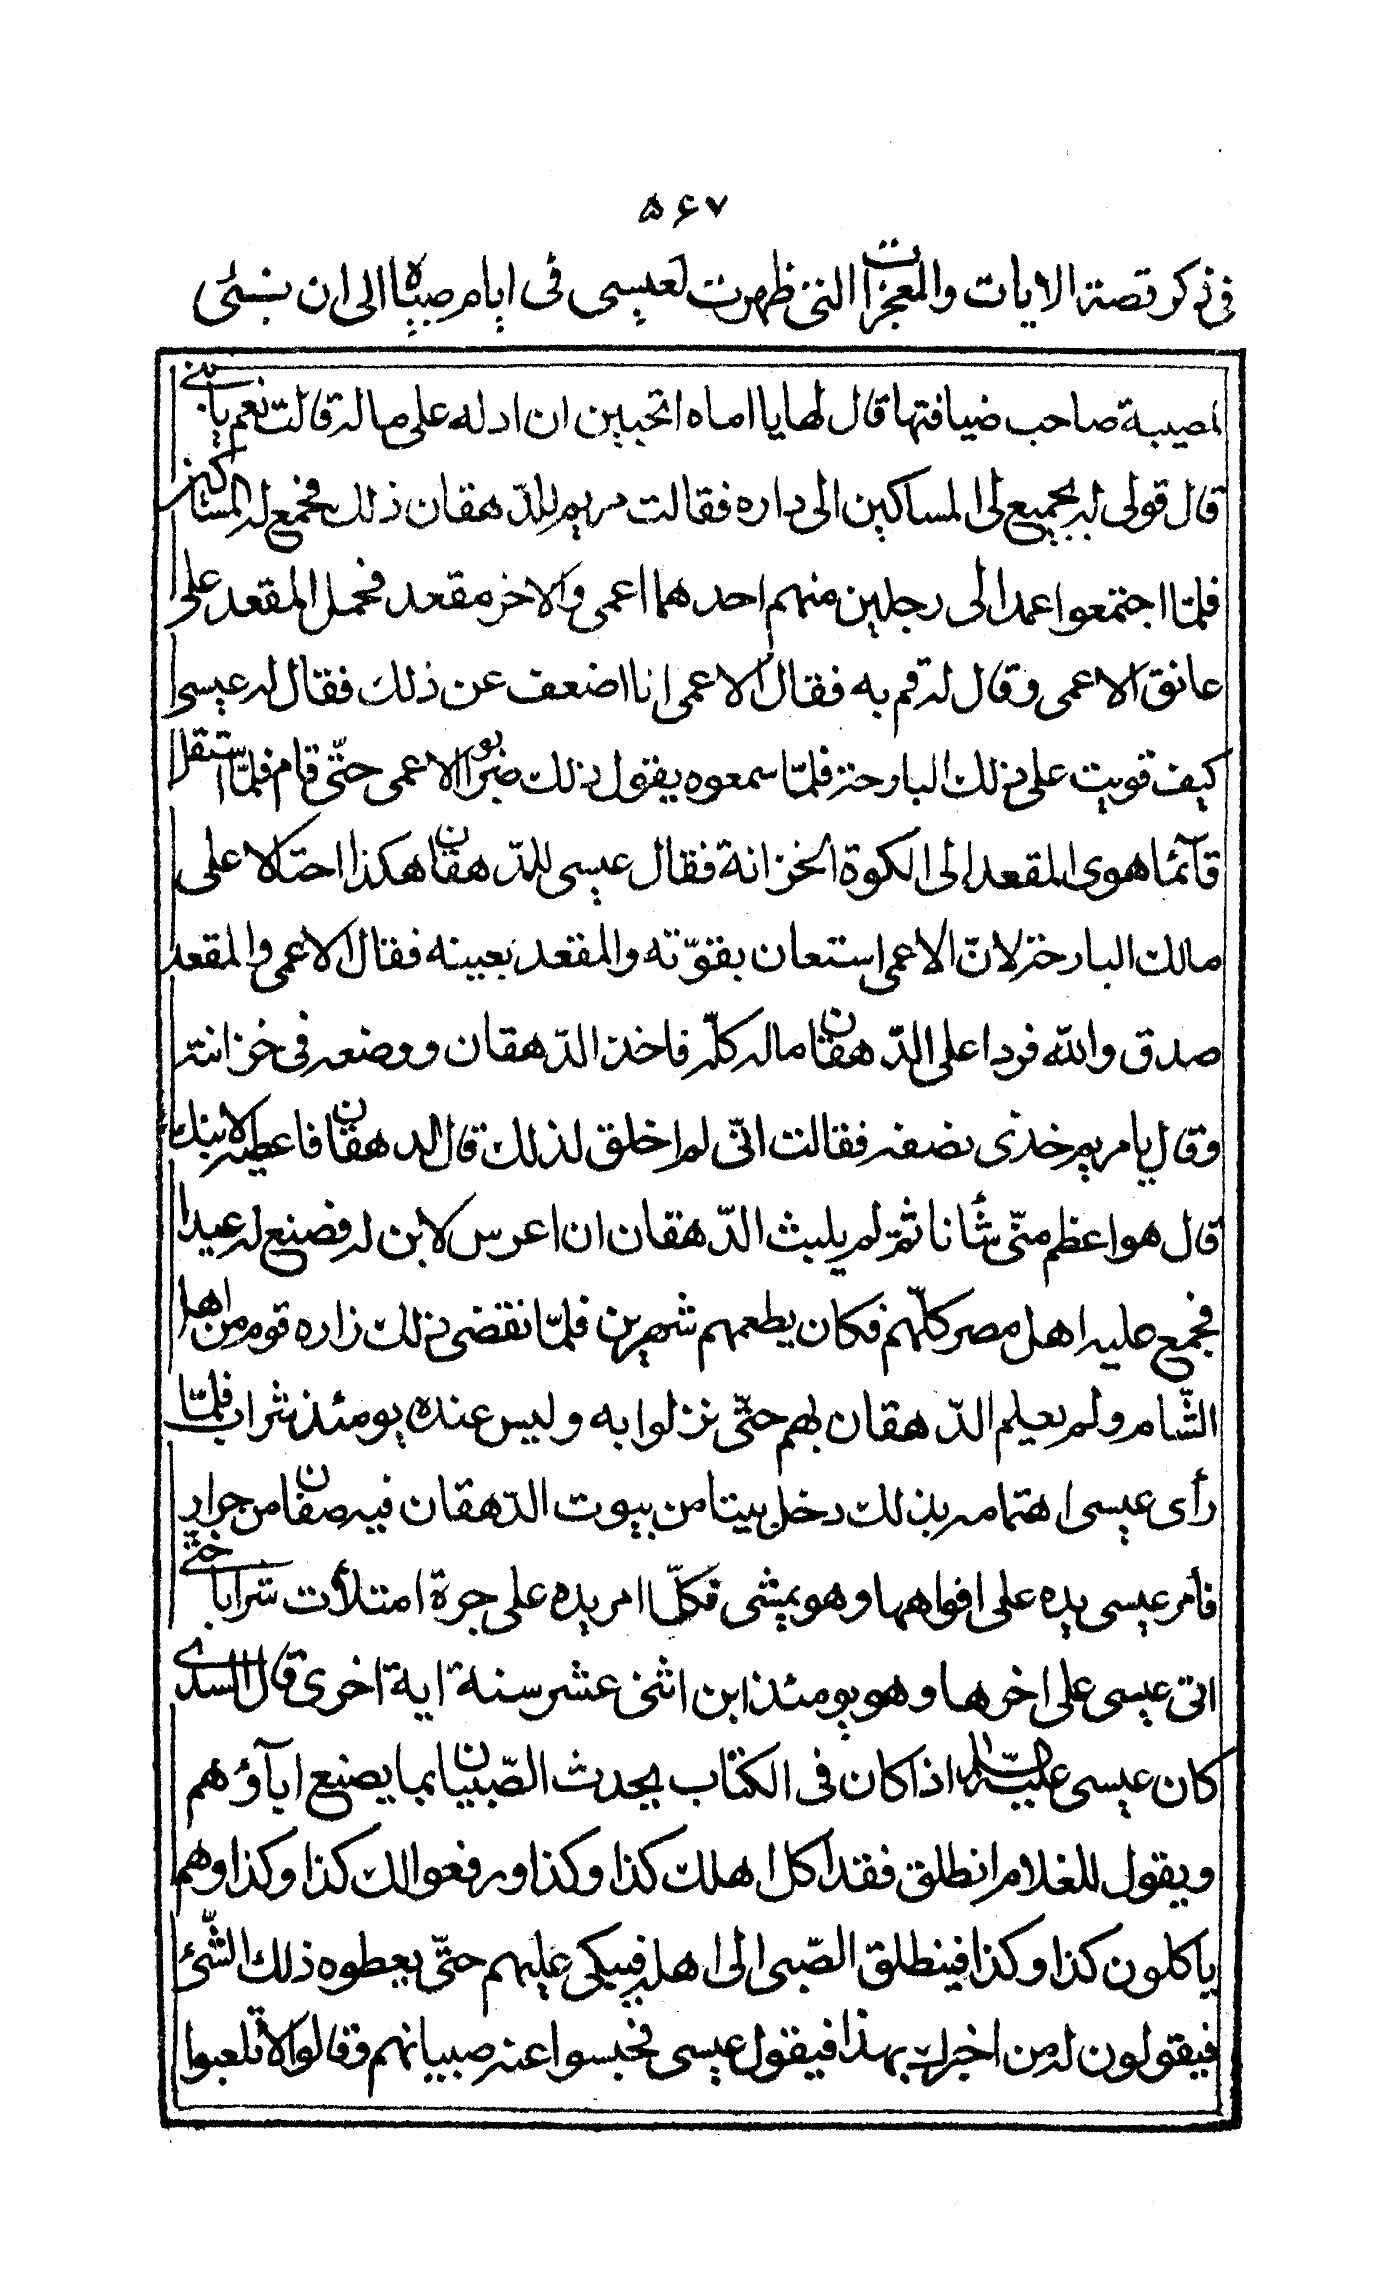 ۵۶۷
فی ذکر قصة الایات والمعجزات التی ظهرت لعیسی فی ایام صباه الی ان نبئی
لمصیبة صاحب ضیافتها قال لها یا اماه اتحبین ان ادله علی ماله قالت نعم یا بنی
قال قولی له یجمیع لی المساکین الی داره فقالت مریم للدّهقان ذلك فجمع له المساکین
فلمّا اجتمعوا عمد الی رجلین منهم احدهما اعمی والاخر مقعد فحمل المقعد علی
عاتق الاعمی وقال له قم به فقال الاعمی انا اضعف عن ذلك فقال له عیسی
کیف قویت علی ذلك البارحة فلمّا سمعوه یقول ذلك ضربوا الاعمی حتّی قام فلمّا استقل
قآئمًا هوی المقعد الی الکوة الخزانة فقال عیسی للدّهقان هکذا احتالا علی
مالك البارحة لانّ الاعمی استعان بقوّته والمقعد بعینه فقال الاعمی والمقعد
صدق والله فردا علی الدّهقان ماله کلّه فاخذ الدّهقان ووضعه فی خزانته
وقال یا مریم خذی نصفه فقالت انّی لم اخلق لذلك قال الدهقان فاعطیه لابنك
قال هو اعظم منّی شأنا ثمّ لم یلبث الدّهقان ان اعرس لابن له فصنع له عیدا
فجمع علیه اهل مصر کلّهم فکان یطعمهم شهرین فلمّا نقضی ذلك زاره قوم من اهل
الشّام ولم یعلم الدّهقان بهم حتّی نزلوا به ولیس عنده یومئذ شراب فلمّا
رأی عیسی اهتمامه بذلك دخل بیتا من بیوت الدّهقان فیه صفان من جرار
فأمر عیسی یده علی افواهها وهو یمشی فکلّما امر یده علی جرة امتلأت شرابا حتّی
اتی عیسی علی اخرها وهو یومئذ ابن اثنی عشر سنة ایة اخری قال السدی
کان عیسی علیه السلام اذا کان فی الکتاب یحدث الصّبیان بما یصنع ابآؤهم
ویقول للغلام انطلق فقد اکل اهلك کذا وکذا ورفعوا لك کذا وکذا وهم
یاکلون کذا وکذا فینطلق الصّبی الی اهله فیبکی علیهم حتّی یعطوه ذلك الشّیٔ
فیقولون له من اخبرك بهذا فیقول عیسی فحبسوا عنه صبیانهم وقالوا لا تلعبوا